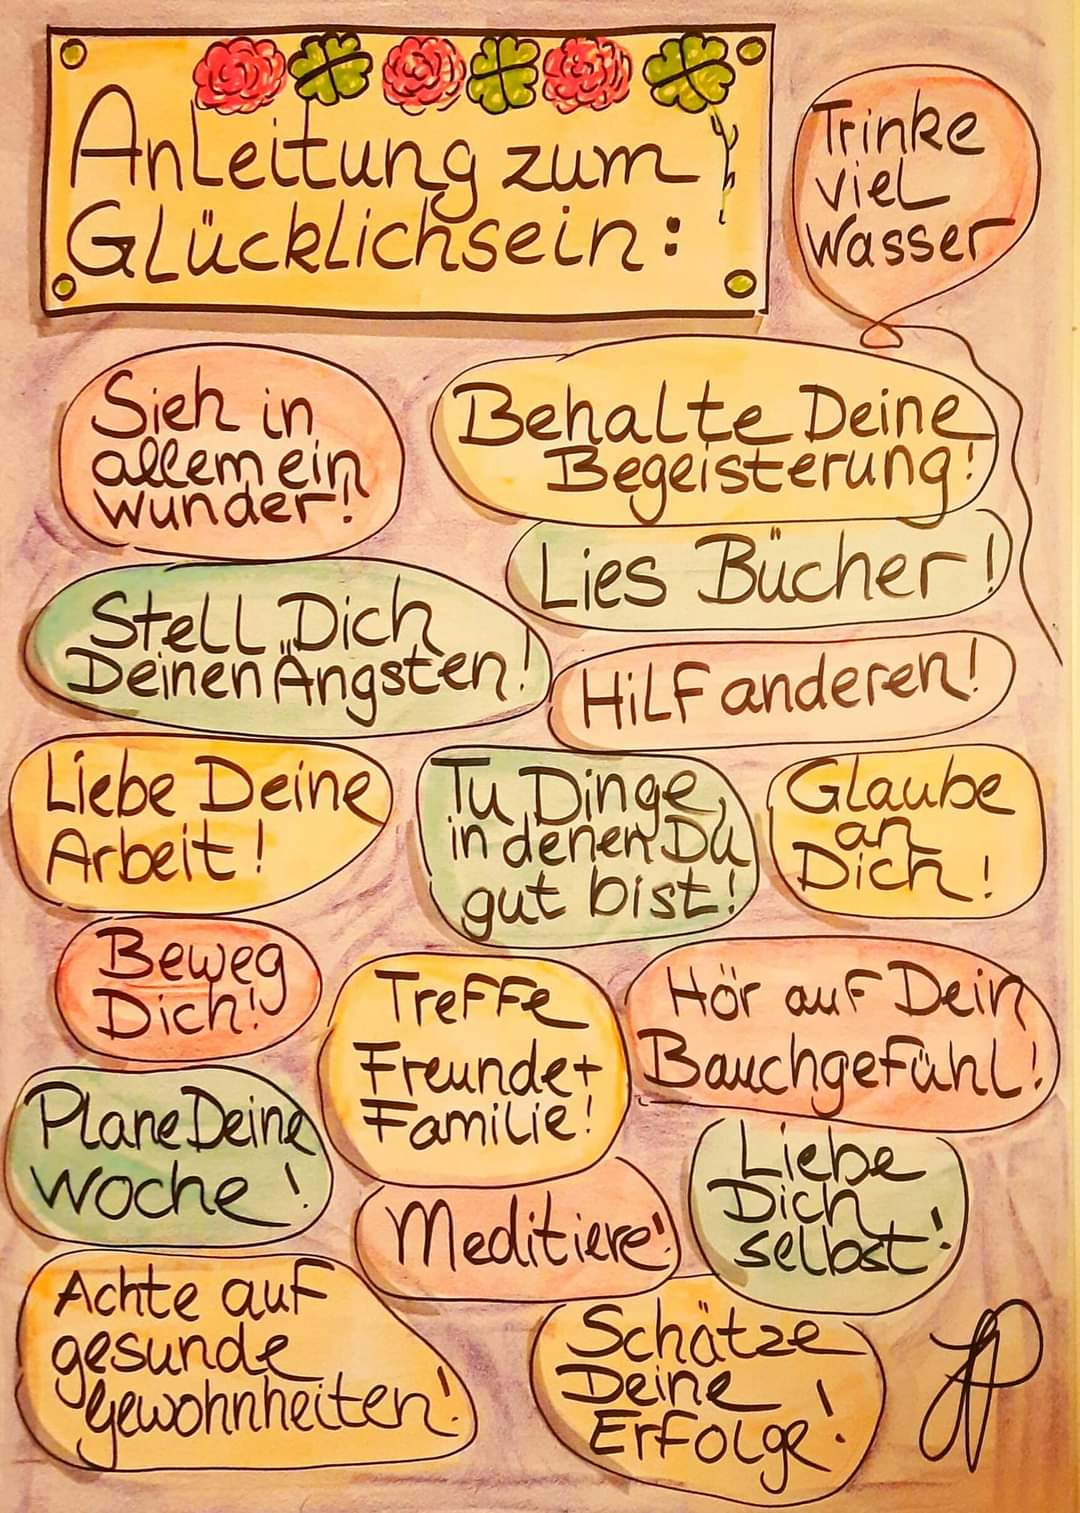 Anleitung zum
Glücklichsein:
Trinke
viel
Wasser
Sieh in
allem ein
wunder!
Behalte Deine
Begeisterung!
Lies Bücher!
Stell Dich
Deinen Ängsten!
Hilf anderen!
Liebe Deine
Arbeit!
Tu Dinge,
in denen Du
gut bist!
Glaube
an
Dich!
Beweg
Dich!
Treffe
Freunde+
Familie!
Hör auf Dein
Bauchgefühl!
Plane Deine
Woche!
Meditiere!
Liebe
Dich
selbst!
Achte auf
gesunde
Gewohnheiten!
Schätze
Deine
Erfolge!